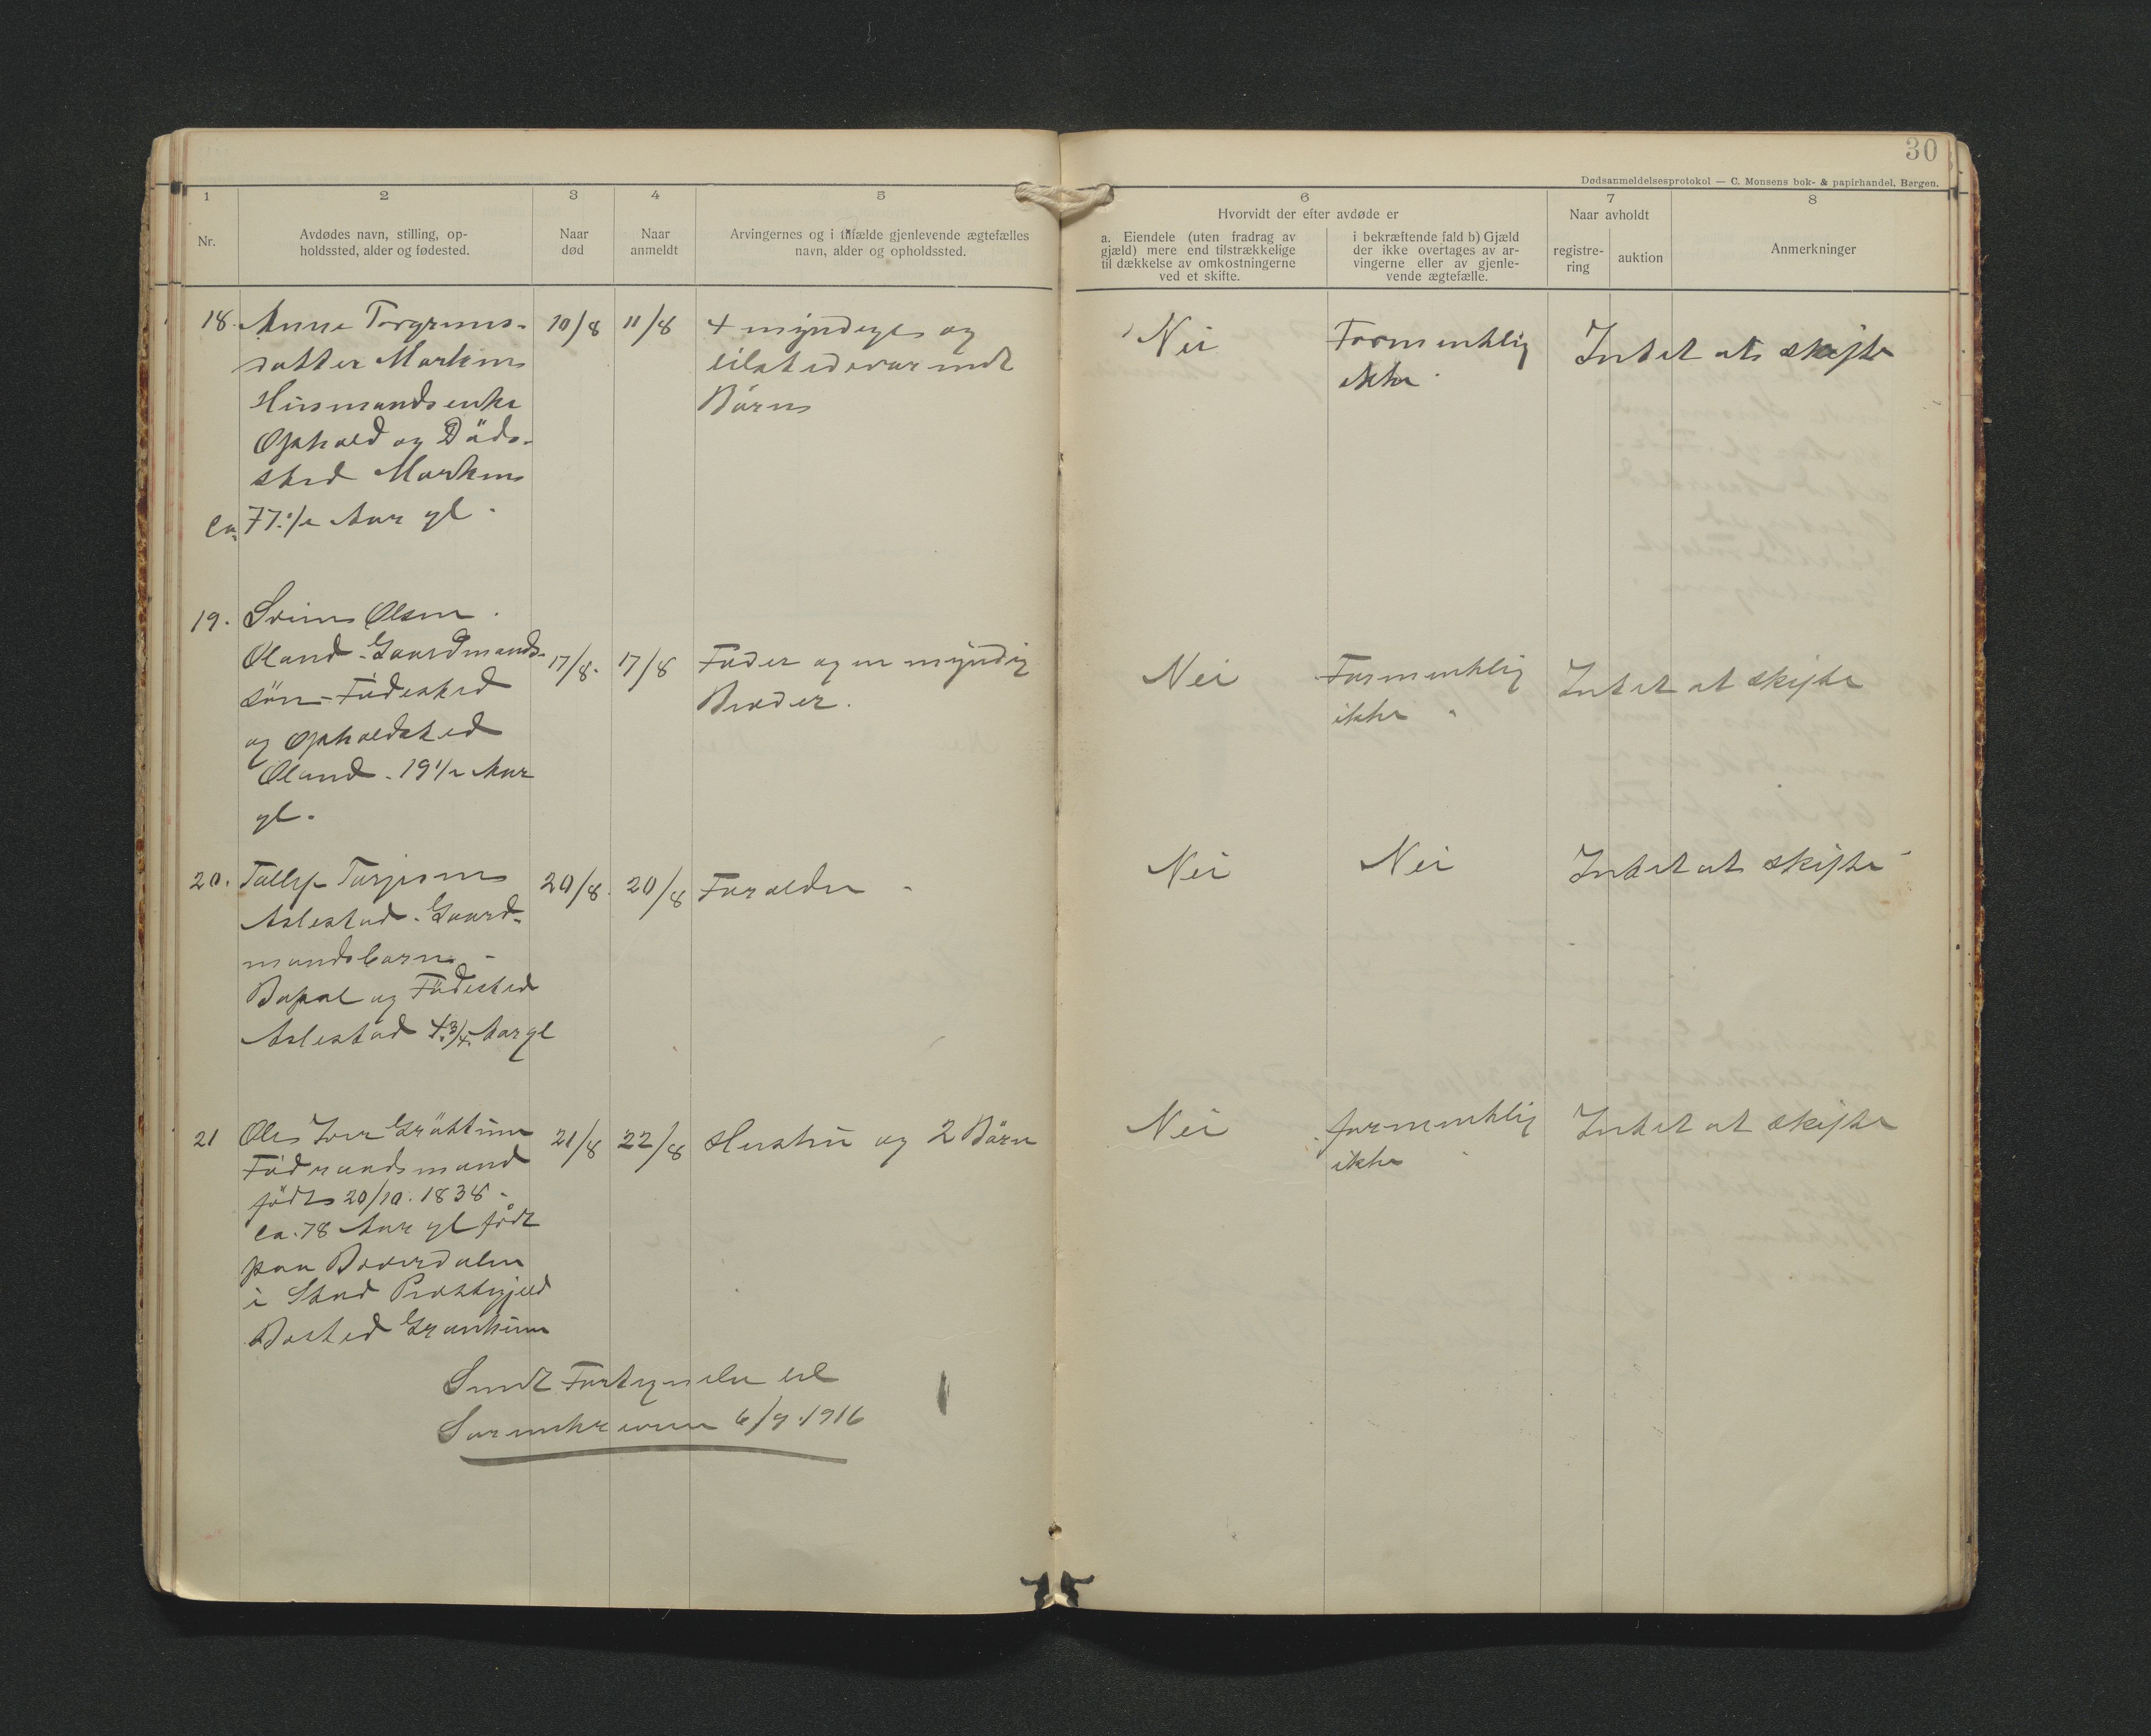 30
Dødsanmeldelsesprotokol — C. Monsens bok- & papirhandel, Bergen.
1 2 3 4 5 6 7 8
Nr.
Avdødes navn, stilling, op-
holdssted, alder og fødested.
Naar
død
Naar
anmeldt
Arvingernes og i tilfælde gjenlevende ægtefælles
navn, alder og opholdssted.
Hvorvidt der efter avdøde er
a. Eiendele (uten fradrag av
gjæld) mere end tilstrækkelige
til dækkelse av omkostningerne
ved et skifte.
i bekræftende fald b) Gjæld
der ikke overtages av ar-
vingerne eller av gjenle-
vende ægtefælle.
Naar avholdt
registre-
ring
auktion
Anmerkninger
18. Anne Torgrims-
datter
Husmandsenke
Ophold og Døds-
sted
ca. 77 1/2 Aar gl.
10/8 11/8
4 myndige og
tilstedeværende
Börn
Nei
Formentlig
ikke
Intet at skifte
19. Svein Olsen
Øland - Gaardmands-
sön - Födested
og Opholdsted
Øland. 19 1/2 Aar
gl.
17/8. 17/8
Fader og en myndig
Broder.
Nei
Formentlig
ikke
Intet at skifte
20. Tallef Torjesen
Aslestad. Gaard-
mandsbarn -
Bopæl og Födested
Aslestad 4 3/4 Aar gl
20/8. 20/8
Forældre
Nei
Nei
Intet at skifte
21 Ole
Föderaadsmand
födt 20/10. 1838 -
ca. 78 Aar gl födt
paa
i Stod Prestegjeld
Bosted
21/8 22/8
Hustru og 2 Börn
Nei
formentlig
ikke
Intet at skifte
Sendt Fortegnelse til
Sorenskriveren 6/9 1916